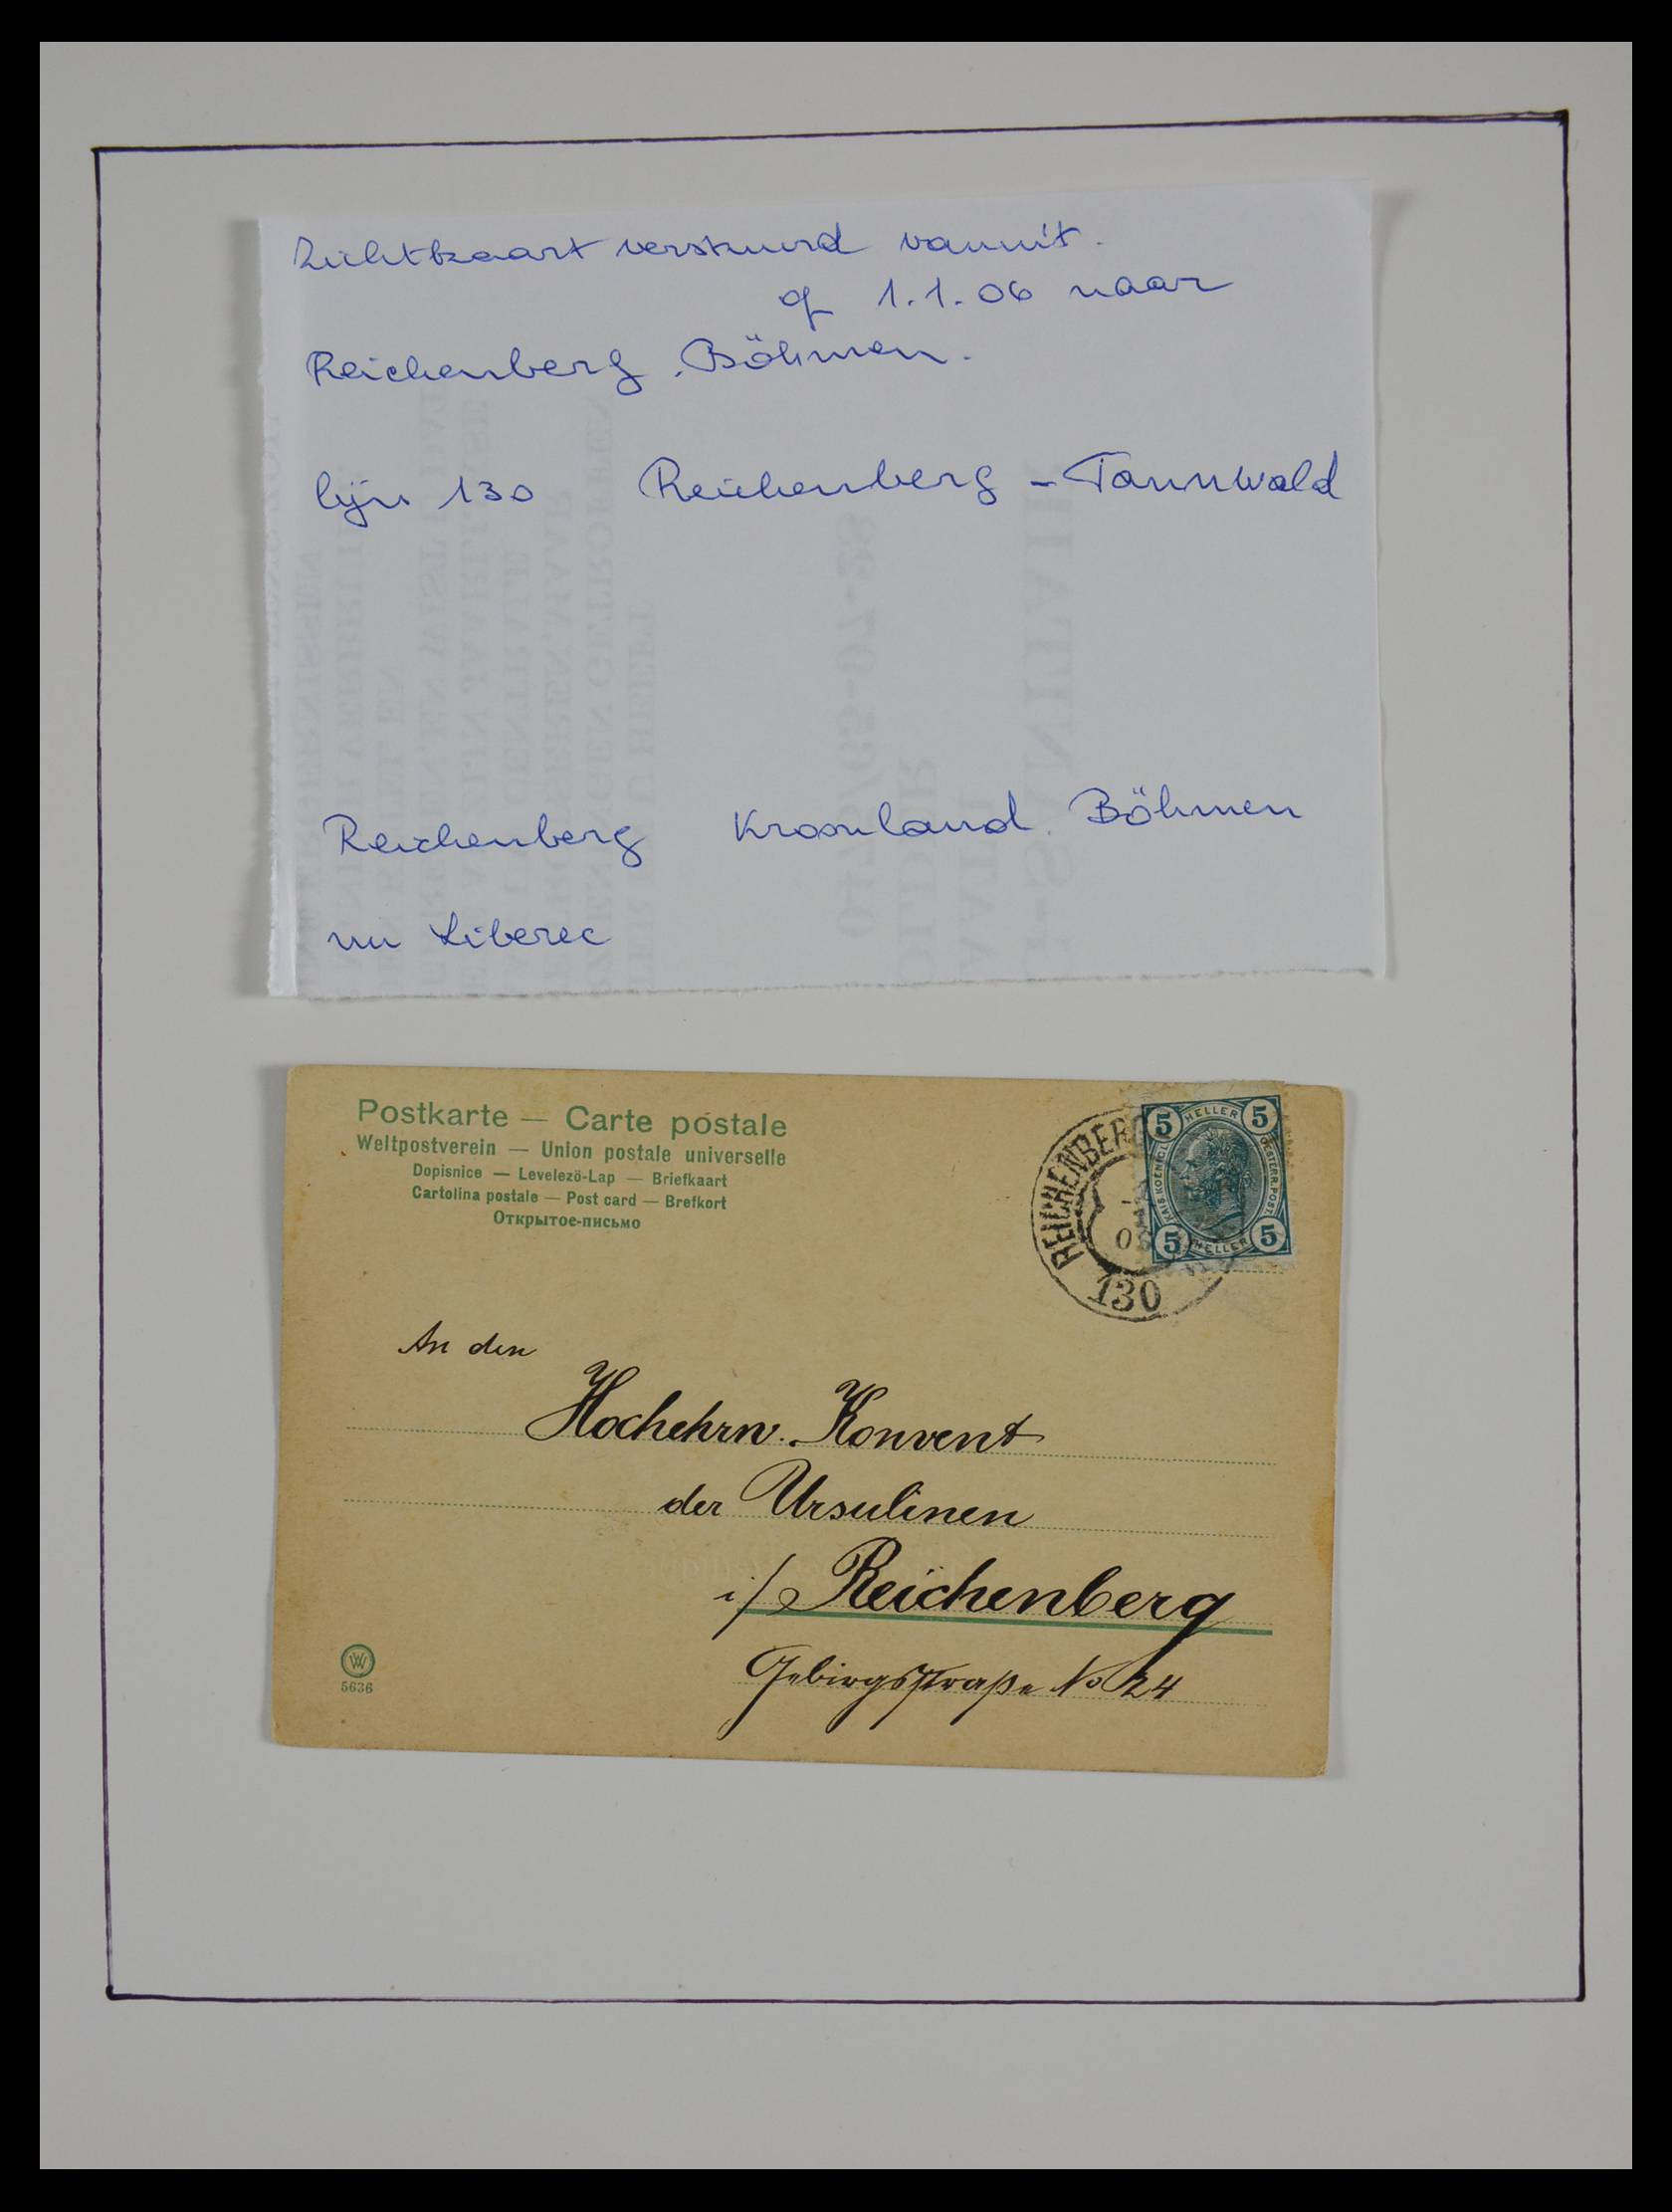 Zichtkaart verstuurd vanuit.
op 1.1.06 naar
Reichenberg. Böhmen.
lijn 130 Reichenberg - Tannwald
Reichenberg Kroonland Böhmen
nu Liberec
Postkarte — Carte postale
Weltpostverein — Union postale universelle
Dopisnice — Levelező-Lap — Briefkaart
Cartolina postale — Post card — Brefkort
Открытое-письмо
REICHENBERG
130
5 HELLER 5
KAIS. KOENIGL. OESTERR. POST.
5 HELLER 5
An den
Hochehrw. Konvent
der Ursulinen
i/ Reichenberg
Gebirgsstraße No 24
W
5636